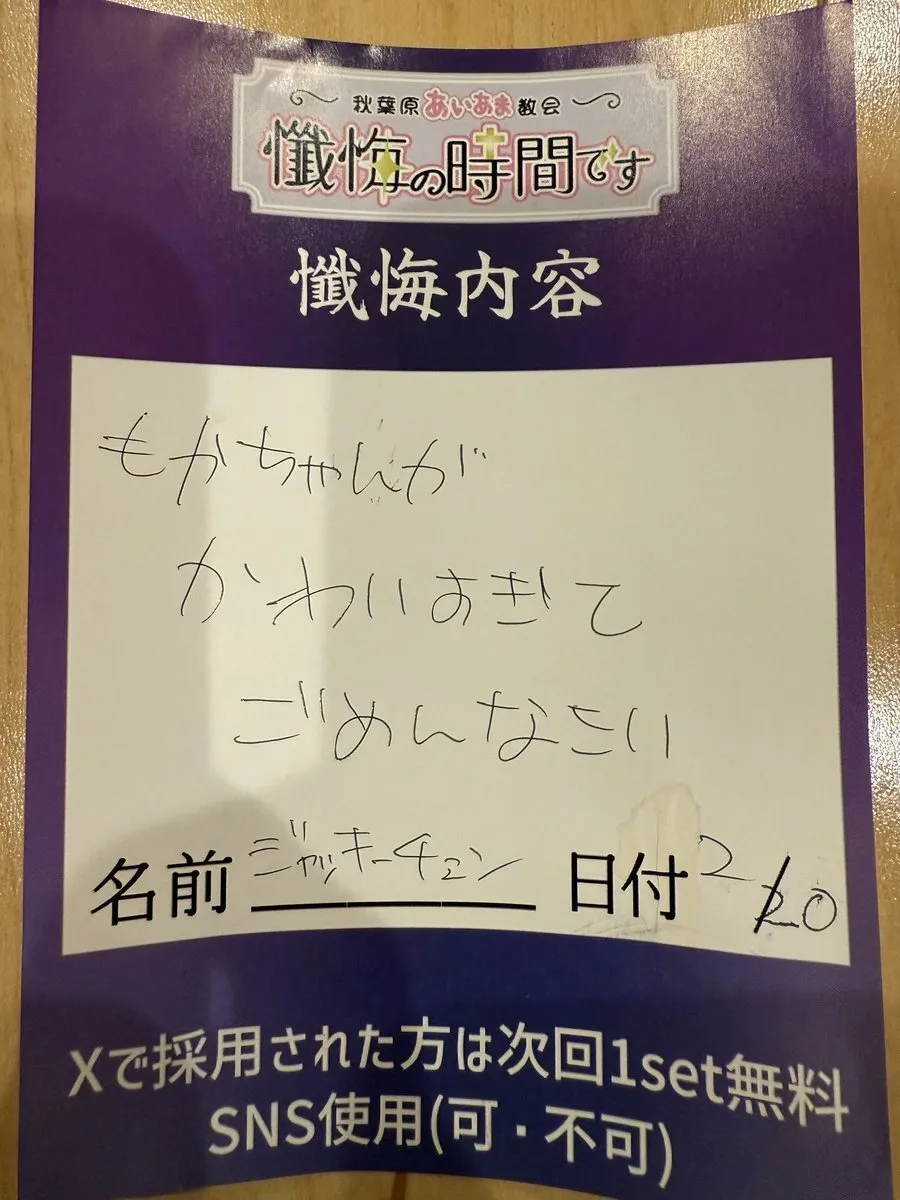 秋葉原あいあま教会
懺悔の時間です
懺悔内容
もかちゃんが
かわいすぎて
ごめんなさい
名前 ジャッキーチェン 日付 2/20
Xで採用された方は次回1set無料
SNS使用(可・不可)